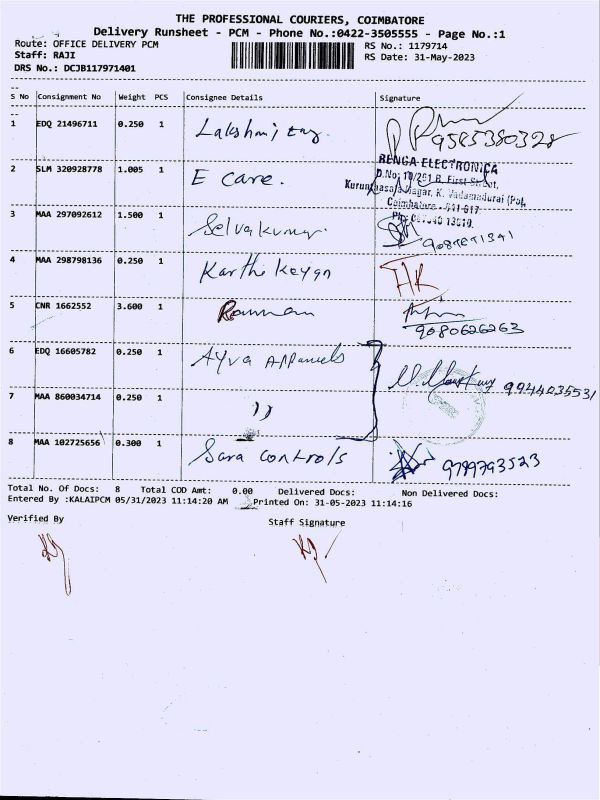 THE PROFESSIONAL COURIERS, COIMBATORE
Delivery Runsheet - PCM - Phone No.:0422-3505555 - Page No.:1
Route: OFFICE DELIVERY PCM RS No.: 1179714
Staff: RAJI RS Date: 31-May-2023
DRS No.: DCJB117971401
S No Consignment No Weight PCS Consignee Details Signature
1 EDQ 21496711 0.250 1 9585380328
2 SLM 320928778 1.005 1 E Care.
RENGA ELECTRONICA
3 MAA 297092612 1.500 1 Selvakumar.
4 MAA 298798136 0.250 1 Karthekeyan HK
5 CNR 1662552 3.600 1
9080626263
6 EDQ 16605782 0.250 1 Ayva Apparels
9944035531
7 MAA 860034714 0.250 1 "
8 MAA 102725656 0.300 1 Sara controls 9789793523
Total No. Of Docs: 8 Total COD Amt: 0.00 Delivered Docs: Non Delivered Docs:
Entered By :KALAIPCM 05/31/2023 11:14:20 AM Printed On: 31-05-2023 11:14:16
Verified By Staff Signature